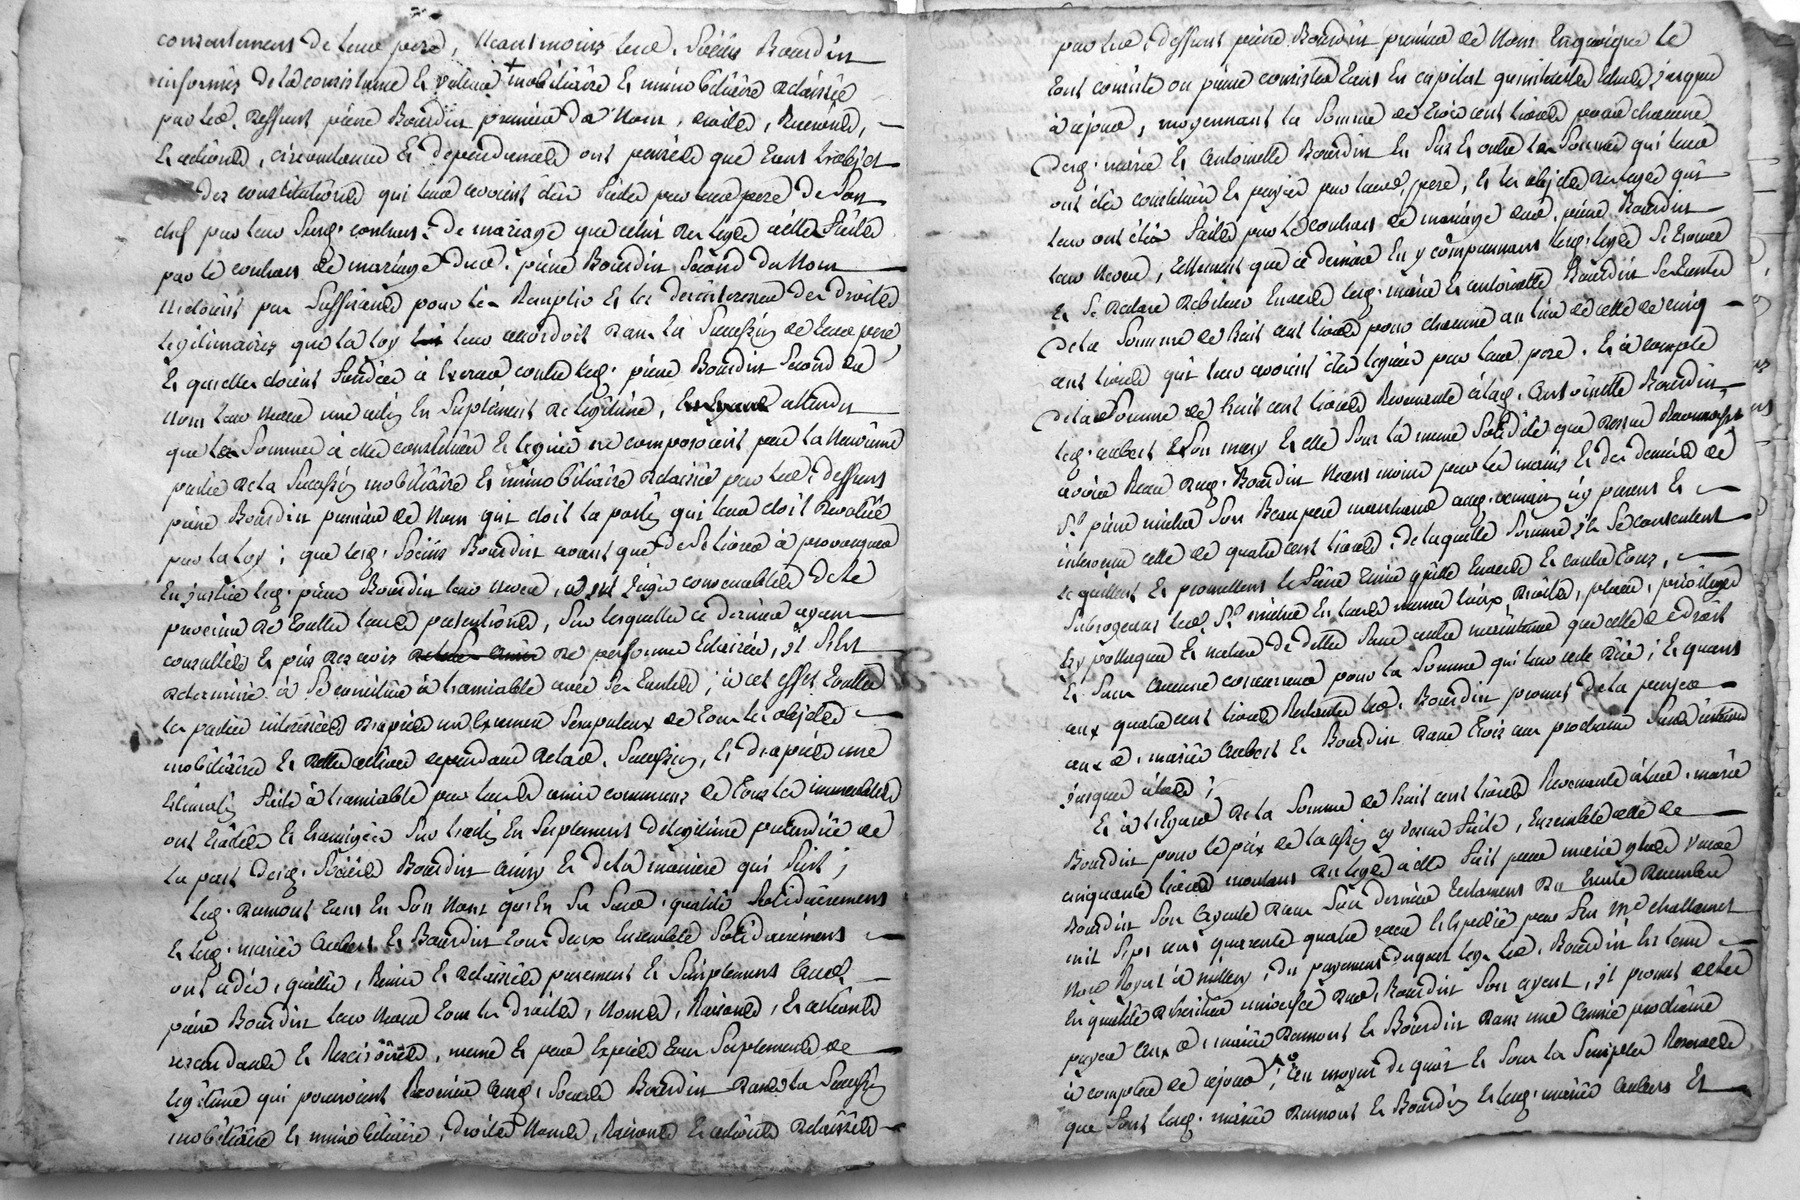 consentement de leur pere, Neantmoins lesd. Sœurs Bourdin
informés de la consistance et valeur mobiliaire et immobiliaire delaissée
par led. deffunt pierre Bourdin premier du Nom, droits, Raisons,
et actions, circonstances et dependances ont pensées que tant l'objet
des constitutions qui leur avoient été faites par leur pere de son
chef par leur susd. contrat de mariage que celui du legs à elles faits
par le contrat de mariage dud. pierre Bourdin Second du Nom
n'etoient pas suffisans pour les Remplir et les desinteresser des droits
legitimaires que la loy leur accordoit dans la succession de leur pere,
et qu'elles etoient fondées à exercer contre led. pierre Bourdin Second du
nom leur neveu une action en suplement de legitime, attendu
que les Sommes à elles constituées et leguées ne composoient pas la neuvieme
partie de la Succession mobiliaire et immobiliaire delaissée par led. deffunt
pierre Bourdin premier du Nom qui etoit la portion qui leur etoit devolue
par la loy ; que lesd. Sœurs Bourdin avant que de se livrer à provoquer
en justice led. pierre Bourdin leur neveu, ont jugé convenable de le
prevenir de toutes leurs pretentions, sur lesquelles ce dernier ayant
consulté et pris des avis de personnes eclairées, il s'est
determiné à se concilier à l'amiable avec ses tantes ; à cet effet toutes
les parties interessées d'après un examen scrupuleux de tous les objets
mobiliaires et dettes actives dependans de lad. Succession, et d'après une
estimation faite à l'amiable par leurs amis communs de tous les immeubles
ont traité et transigé sur l'action en suplement de legitime pretendue de
la part desd. Sœurs Bourdin ainsy et de la maniere qui suit ;
led. Dumont tant en son Nom qu'en sa susd. qualité solidairement
et lesd. mariés Aubert et Bourdin tous deux ensemble solidairement
ont cédé, quitté, Remis et delaissé purement et simplement aud.
pierre Bourdin leur neveu tous les droits, Noms, Raisons, et actions
rescindants et Rescisoires, meme et par exprès tous suplements de
legitime qui pourroient Revenir auxd. Sœurs Bourdin dans la Succession
mobiliaire et immobiliaire, droits, Noms, Raisons et actions delaissés
par led. deffunt pierre Bourdin premier du Nom en quoique le
tout consiste ou puisse consister tant en capital qu'interets echus jusques
à ce jour, moyennant la Somme de trois cent livres pour chacune
desd. marie et Antoinette Bourdin en sus et outre les Sommes qui leur
ont été constituées et payées par leurd. pere, et les objets du legs qui
leur ont été faits par le contrat de mariage dud. pierre Bourdin
leur neveu, tellement que ce dernier en y comprenant lesd. legs se trouve
et se declare debiteur envers lesd. marie et antoinette Bourdin ses tantes
de la Somme de huit cent livres pour chacune au lieu de celle de cinq
cent livres qui leur avoient été leguées par leur pere. Et à compte
de la Somme de huit cent livres Revenante à lad. Antoinette Bourdin
led. aubert son mary et elle sous la meme solidité que dessus Reconnoissent
avoir Reçu dud. Bourdin neant moins par les mains et des deniers de
Sr. pierre michel son Beau pere marchand icy present et
intervenu celle de quatre cent livres ; de laquelle somme ils se contentent
et quittent et promettent le faire tenir quitte envers et contre tous,
subrogeant led. Sr. michel en leurs memes lieux, droits, places, privileges
hypotheques et nature de dettes sans autre maintenue que celle de droit
et sans aucune concurrence pour la somme qui leur reste düe ; Et quant
aux quatre cent livres Restantes led. Bourdin promet de les payer
aux d. mariés Aubert et Bourdin dans trois ans prochains sans interets
jusques alors ;
Et à l'Egard de la Somme de huit cent livres Revenante à lad. marie
Bourdin pour le prix de la cession cy dessus faite, Ensemble celle de
cinquante livres montant du legs à elle fait par marie
Bourdin son ayeule dans son dernier testament du trente decembre
mil sept cent quarante quatre reçu et expedié par feu Me challamet
Nore Royal à millery, du payement duquel legs led. Bourdin est tenu
en qualité d'heritier universel dud. Bourdin son ayeul, il promet de les
payer aux d. mariés Dumont et Bourdin dans une année prochaine
à compter de ce jour ; au moyen de quoi et sous les susdites Reserves
que font lesd. mariés Dumont et Bourdin et lesd. mariés Aubert et